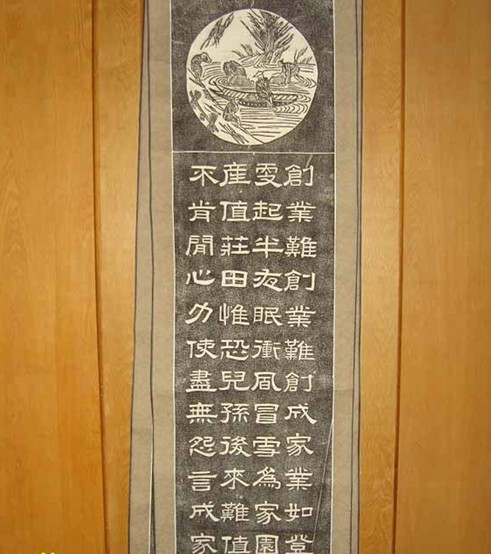 創業難創業難創成家業如登
更起半夜眠衝風冒雪為家園
産值莊田惟恐兒孫後來難值
不肯閒心力使盡無怨言成家